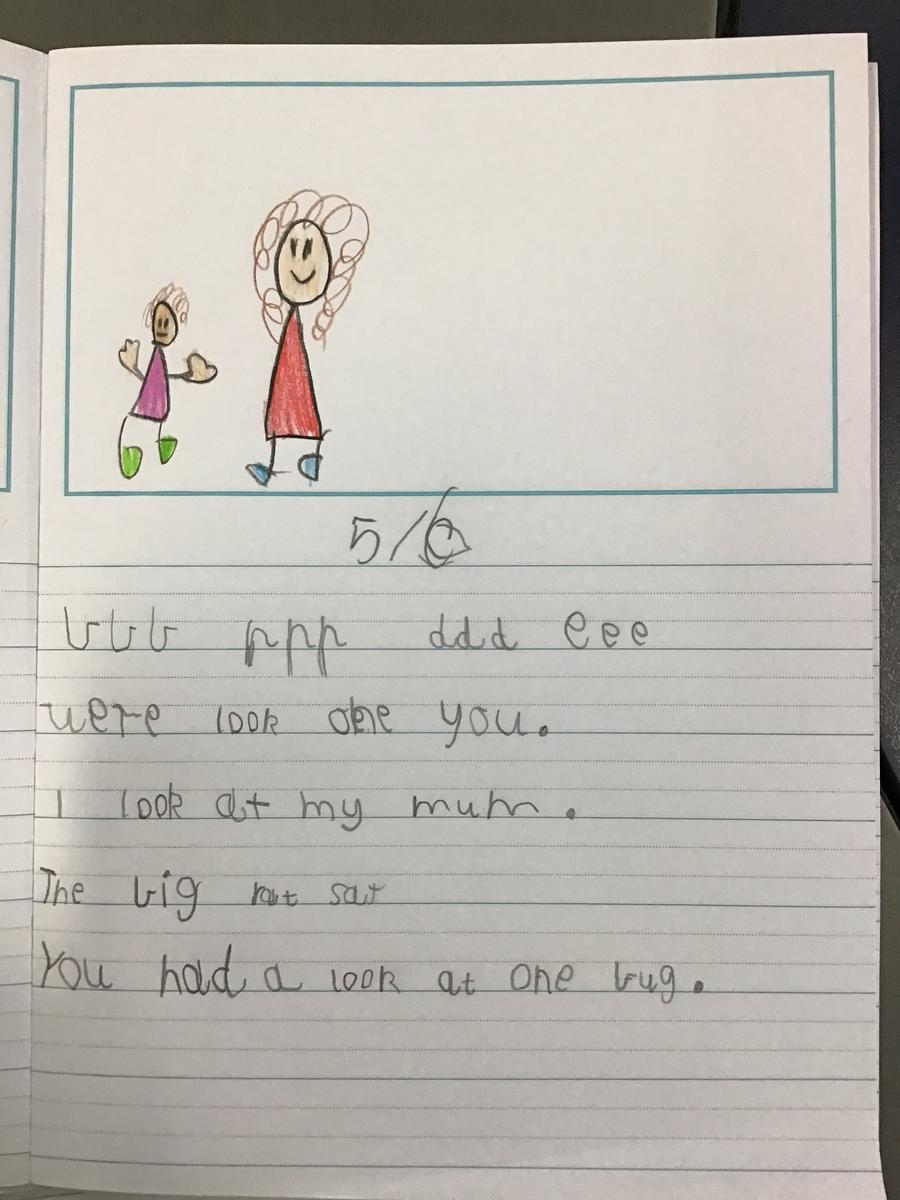 5/6
bbb ppp ddd eee
were look one you.
I look at my mum.
The big rat sat
You had a look at one bug.